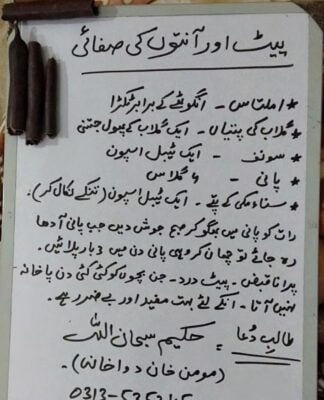 پیٹ اور آنتوں کی صفائی
* املتاس - انگوٹھے کے برابر ٹکڑا
* گلاب کی پتیاں - ایک گلاب کے پھول جتنی
* سونف - ایک ٹیبل اسپون
* پانی - ۴ گلاس
* سناء مکی کے پتے - ایک ٹیبل اسپون (تنکے نکال کر).
رات کو پانی میں بھگو کر صبح جوش دیں جب پانی آدھا
رہ جائے تو چھان کر وہی پانی دن میں 3 بار پلائیں.
پرانا قبض - پیٹ درد - جن بچوں کو کئی کئی دن پاخانہ
نہیں آتا - انکے لئے بہت مفید اور بے ضرر ہے.
طالبِ دعا = حکیم سبحان اللہ
(مومن خان دواخانہ).
0313-